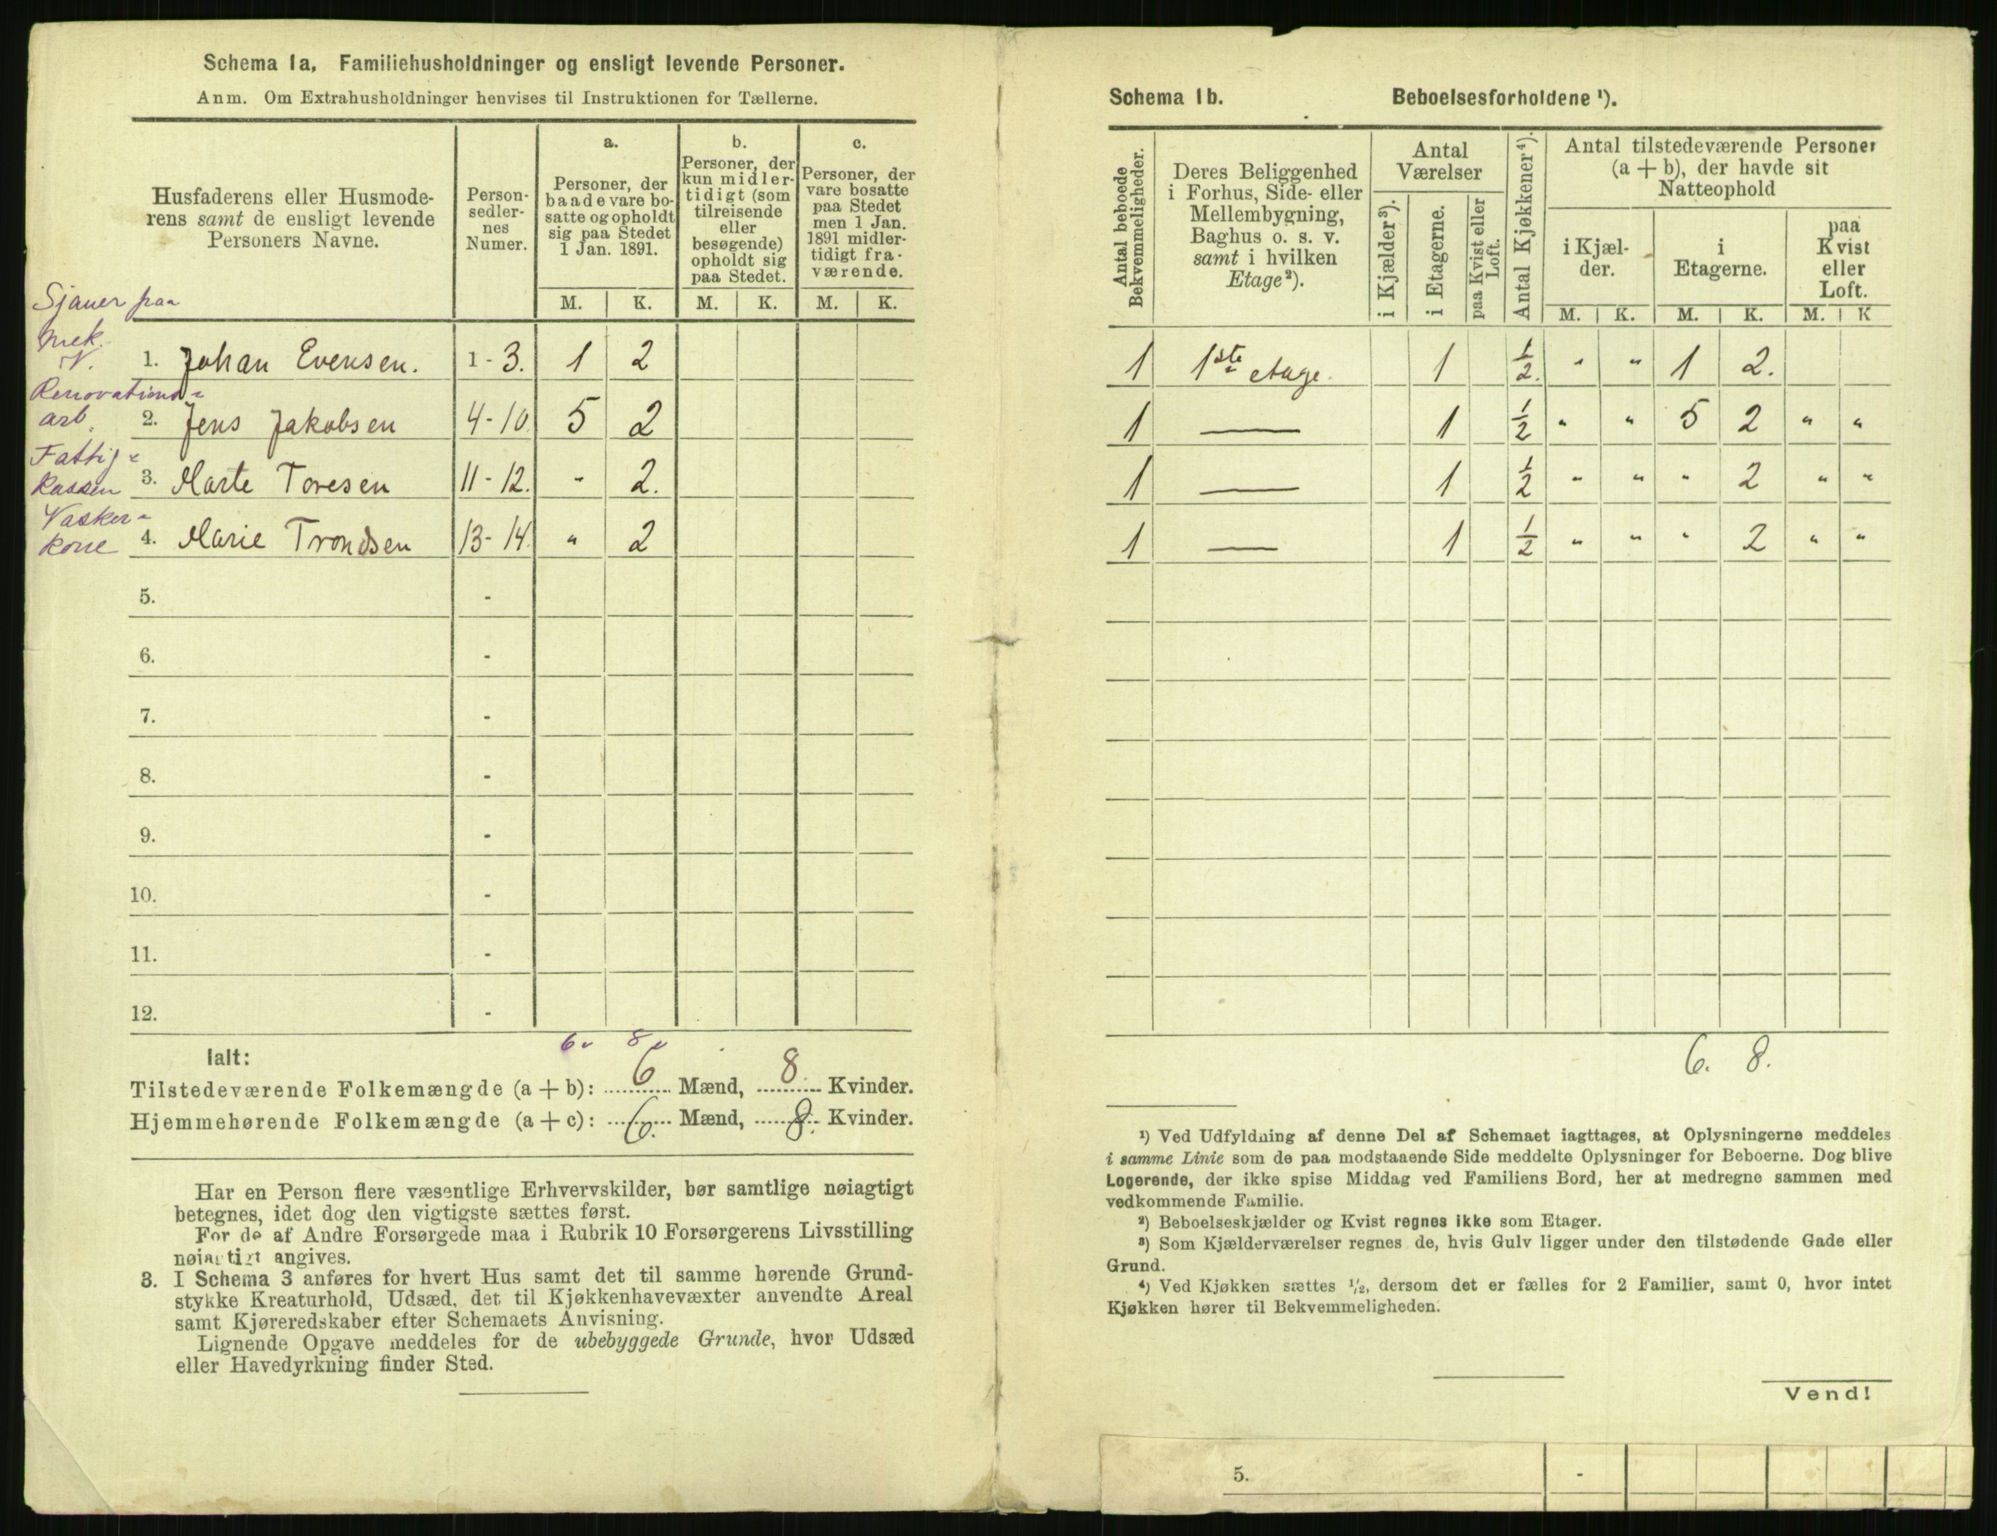 Schema 1a, Familiehusholdninger og ensligt levende Personer.
Anm. Om Extrahusholdninger henvises til Instruktionen for Tællerne.
Husfaderens eller Husmode-
rens samt de ensligt levende
Personers Navne.
Person-
sedler-
nes
Numer.
a.
Personer, der
baade vare bo-
satte og opholdt
sig paa Stedet
1 Jan. 1891.
b.
Personer, der
kun midler-
tidigt (som
tilreisende
eller
besøgende)
opholdt sig
paa Stedet.
c.
Personer, der
vare bosatte
paa Stedet
men 1 Jan.
1891 midler-
tidigt fra-
værende.
M. K. M. K. M. K.
Sjauer paa
mek.
V.
1. Johan Evensen. 1 - 3. 1 2
Renovations-
arb.
2. Jens Jakobsen 4 - 10. 5 2
Fattig-
kassen
3. Marte Toresen 11 - 12. " 2.
Vasker-
kone
4. Marie Trondsen 13 - 14. " 2
5. -
6. -
7. -
8. -
9. -
10. -
11. -
12. -
6 8
Ialt:
Tilstedeværende Folkemængde (a + b): 6 Mænd, 8 Kvinder.
Hjemmehørende Folkemængde (a + c): 6. Mænd, 8. Kvinder.
Har en Person flere væsentlige Erhvervskilder, bør samtlige nøiagtigt
betegnes, idet dog den vigtigste sættes først.
For de af Andre Forsørgede maa i Rubrik 10 Forsørgerens Livsstilling
nøiagtigt angives.
3. I Schema 3 anføres for hvert Hus samt det til samme hørende Grund-
stykke Kreaturhold, Udsæd, det til Kjøkkenhavevæxter anvendte Areal
samt Kjøreredskaber efter Schemaets Anvisning.
Lignende Opgave meddeles for de ubebyggede Grunde, hvor Udsæd
eller Havedyrkning finder Sted.
Schema 1b. Beboelsesforholdene ¹).
Antal beboede
Bekvemmeligheder.
Deres Beliggenhed
i Forhus, Side- eller
Mellembygning,
Baghus o. s. v.
samt i hvilken
Etage²).
Antal
Værelser
i Kjælder³).
i Etagerne.
paa Kvist eller
Loft.
Antal Kjøkkener⁴).
Antal tilstedeværende Personer
(a + b), der havde sit
Natteophold
i Kjæl-
der.
i
Etagerne.
paa
Kvist
eller
Loft.
M. K. M. K. M. K
1 1ste etage. 1 1/2. " " 1 2.
1 — 1 1/2 " " 5 2 " "
1 — 1 1/2 " " " 2 " "
1 — 1 1/2 " " " 2 " "
6. 8.
¹) Ved Udfyldning af denne Del af Schemaet iagttages, at Oplysningerne meddeles
i samme Linie som de paa modstaaende Side meddelte Oplysninger for Beboerne. Dog blive
Logerende, der ikke spise Middag ved Familiens Bord, her at medregne sammen med
vedkommende Familie.
²) Beboelseskjælder og Kvist regnes ikke som Etager.
³) Som Kjælderværelser regnes de, hvis Gulv ligger under den tilstødende Gade eller
Grund.
⁴) Ved Kjøkken sættes 1/2, dersom det er fælles for 2 Familier, samt 0, hvor intet
Kjøkken hører til Bekvemmeligheden.
Vend!
5. -